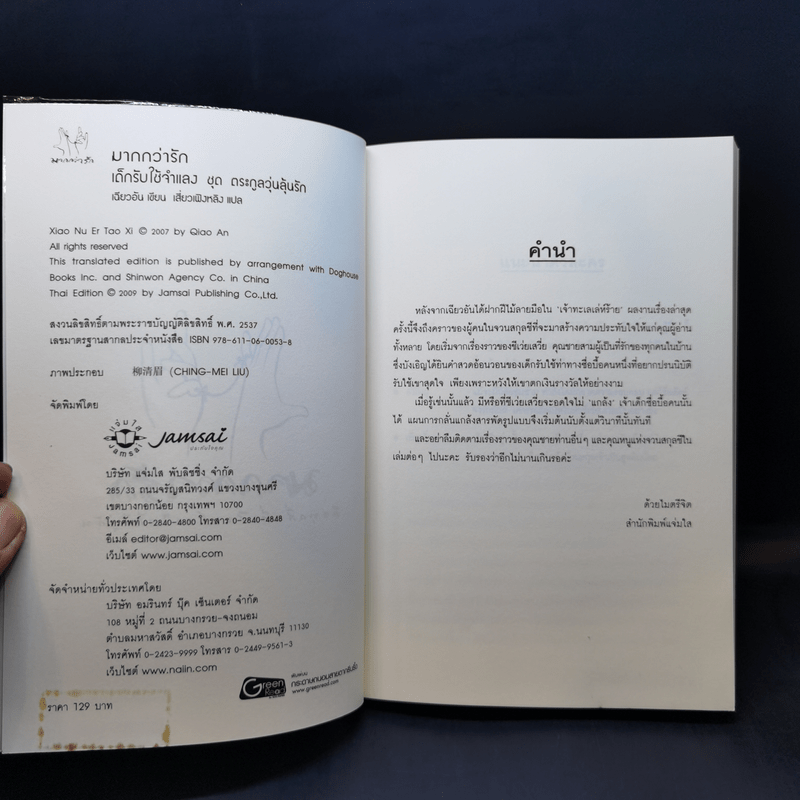 มากกว่ารัก
มากกว่ารัก
เด็กรับใช้จำแลง ชุด ตระกูลวุ่นลุ้นรัก
เฉียวอัน เขียน เสี่ยวเฟิงหลิง แปล
Xiao Nu Er Tao Xi © 2007 by Qiao An
All rights reserved
This translated edition is published by arrangement with Doghouse
Books Inc. and Shinwon Agency Co. in China
Thai Edition © 2009 by Jamsai Publishing Co.,Ltd.
สงวนลิขสิทธิ์ตามพระราชบัญญัติลิขสิทธิ์ พ.ศ. 2537
เลขมาตรฐานสากลประจำหนังสือ ISBN 978-611-06-0053-8
ภาพประกอบ 柳清眉 (CHING-MEI LIU)
จัดพิมพ์โดย
แจ่มใส
Jamsai
Jamsai
บริษัท แจ่มใส พับลิชชิ่ง จำกัด
285/33 ถนนจรัญสนิทวงศ์ แขวงบางขุนศรี
เขตบางกอกน้อย กรุงเทพฯ 10700
โทรศัพท์ 0-2840-4800 โทรสาร 0-2840-4848
อีเมล์ editor@jamsai.com
เว็บไซต์ www.jamsai.com
จัดจำหน่ายทั่วประเทศโดย
บริษัท อมรินทร์ บุ๊ค เซ็นเตอร์ จำกัด
108 หมู่ที่ 2 ถนนบางกรวย-จงถนอม
ตำบลมหาสวัสดิ์ อำเภอบางกรวย จ.นนทบุรี 11130
โทรศัพท์ 0-2423-9999 โทรสาร 0-2449-9561-3
เว็บไซต์ www.naiin.com
Green
Read
กระดาษถนอมสายตากรีนรี้ด
www.greenread.com
ราคา 129 บาท
คำนำ
หลังจากเฉียวอันได้ฝากฝีไม้ลายมือใน 'เจ้าทะเลเล่ห์ร้าย' ผลงานเรื่องล่าสุด
ครั้งนี้จึงถึงคราวของผู้คนในจวนสกุลซีที่จะมาสร้างความประทับใจให้แก่คุณผู้อ่าน
ทั้งหลาย โดยเริ่มจากเรื่องราวของซีเว่ยเสวี่ย คุณชายสามผู้เป็นที่รักของทุกคนในบ้าน
ซึ่งบังเอิญได้ยินคำสวดอ้อนวอนของเด็กรับใช้ท่าทางซื่อบื้อคนหนึ่งที่อยากปรนนิบัติ
รับใช้เขาสุดใจ เพียงเพราะหวังให้เขาตกเงินรางวัลให้อย่างงาม
เมื่อรู้เช่นนั้นแล้ว มีหรือที่ซีเว่ยเสวี่ยจะอดใจไม่ 'แกล้ง' เจ้าเด็กซื่อบื้อคนนั้น
ได้ แผนการกลั่นแกล้งสารพัดรูปแบบจึงเริ่มต้นนับตั้งแต่วินาทีนั้นทันที
และอย่าลืมติดตามเรื่องราวของคุณชายท่านอื่นๆ และคุณหนูแห่งจวนสกุลซีใน
เล่มต่อๆ ไปนะคะ รับรองว่าอีกไม่นานเกินรอค่ะ
ด้วยไมตรีจิต
สำนักพิมพ์แจ่มใส